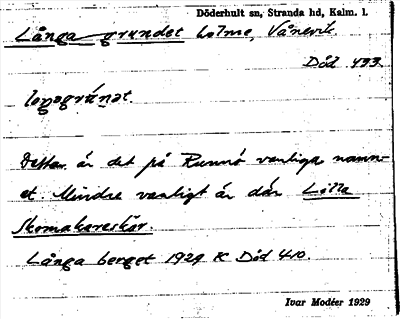 Döderhult sn, Stranda hd, Kalm. l.
Långa grundet holme, Vånevik.
Död. 433
Detta är det på Runnö vanliga namn-
et. Mindre vanligt är där Lilla
Skomakareskär.
Långa berget 1929 K Död 410.
Ivar Modéer 1929